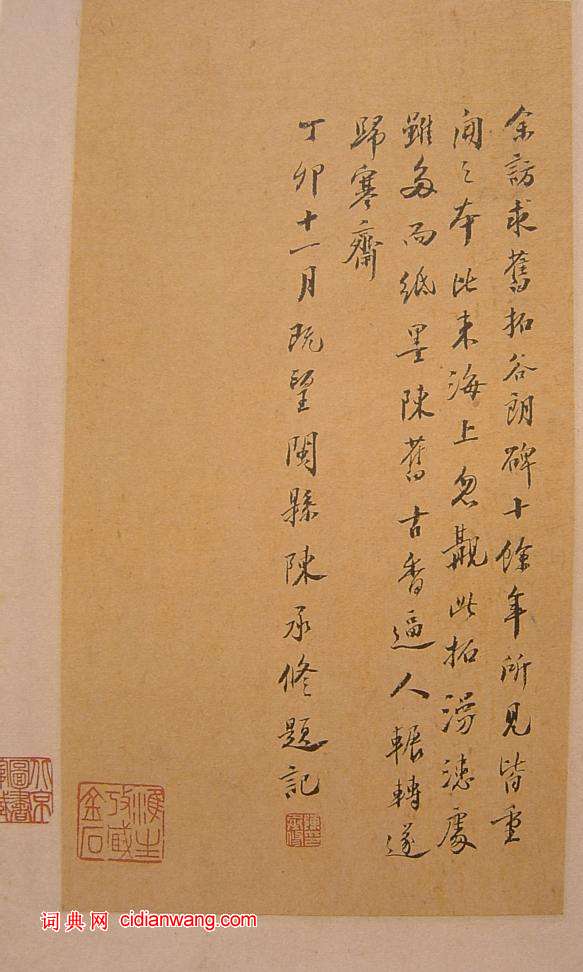 余訪求舊拓谷朗碑十餘年所見皆重
開之本比来海上忽覯此拓漫漶處
雖多而紙墨陳舊古香逼人輾轉遂
歸寒齋
丁卯十一月既望閩縣陳承修題記
淮生
攷藏
金石
北京
圖書
词典网 cidianwang.com